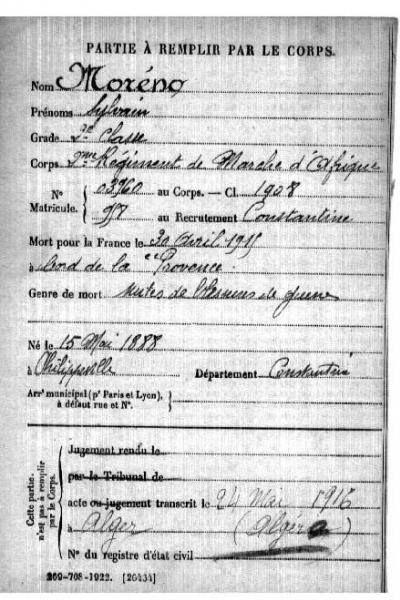 PARTIE À REMPLIR PAR LE CORPS.
Nom Moréno
Prénoms Sylvain
Grade 2e Classe
Corps 2me Régiment de Marche d'Afrique
N° Matricule. { 03760 au Corps. — Cl. 1908
918 au Recrutement Constantine
Mort pour la France le 30 Avril 1915
à bord de la "Provence"
Genre de mort suites de blessures de guerre
Né le 15 Mai 1888
à Philippeville Département Constantine
Arrt municipal (pr Paris et Lyon), à défaut rue et N°. }
Cette partie n'est pas à remplir par le Corps.
Jugement rendu le
par le Tribunal de
acte ou jugement transcrit le 24 Mai 1916
à Alger (Alger)
N° du registre d'état civil
269-708-1922. [26434]